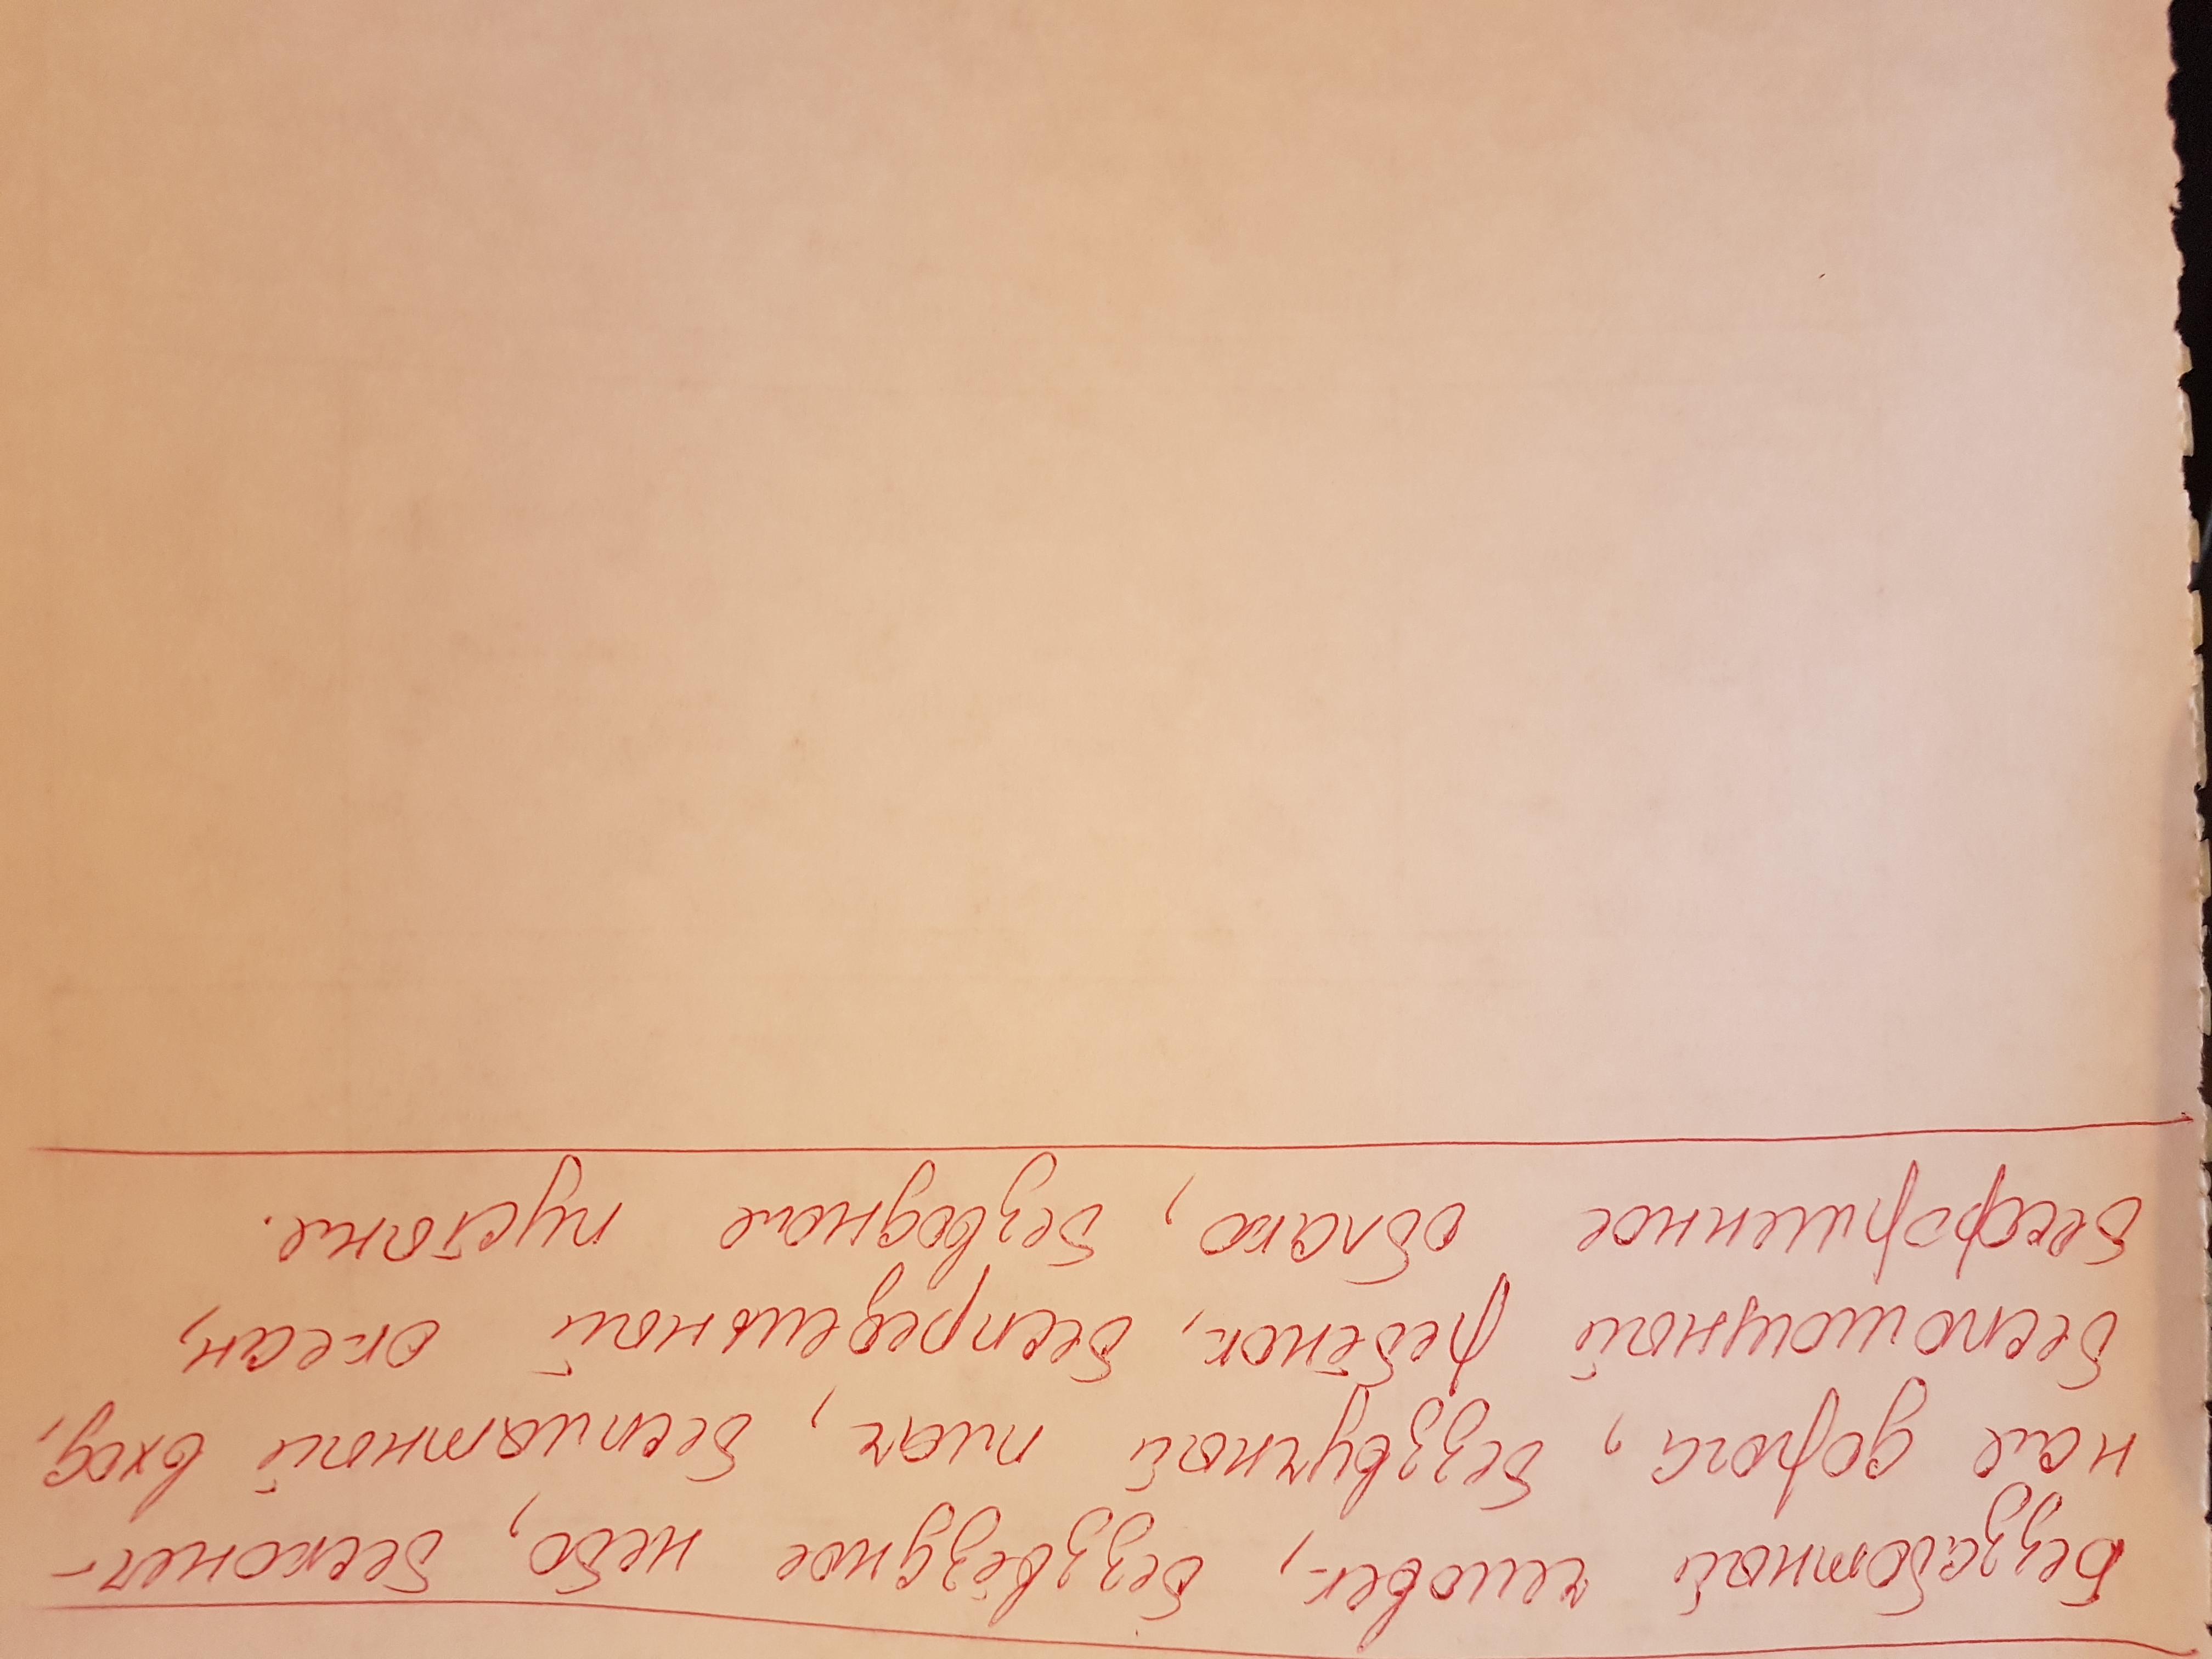 Беззаботный человек, беззвёздное небо, бесконеч-
ные дороги, беззвучный плач, бесплатный вход,
беспомощный ребёнок, беспредельный океан,
бесформенное облако, безводные пустоне.